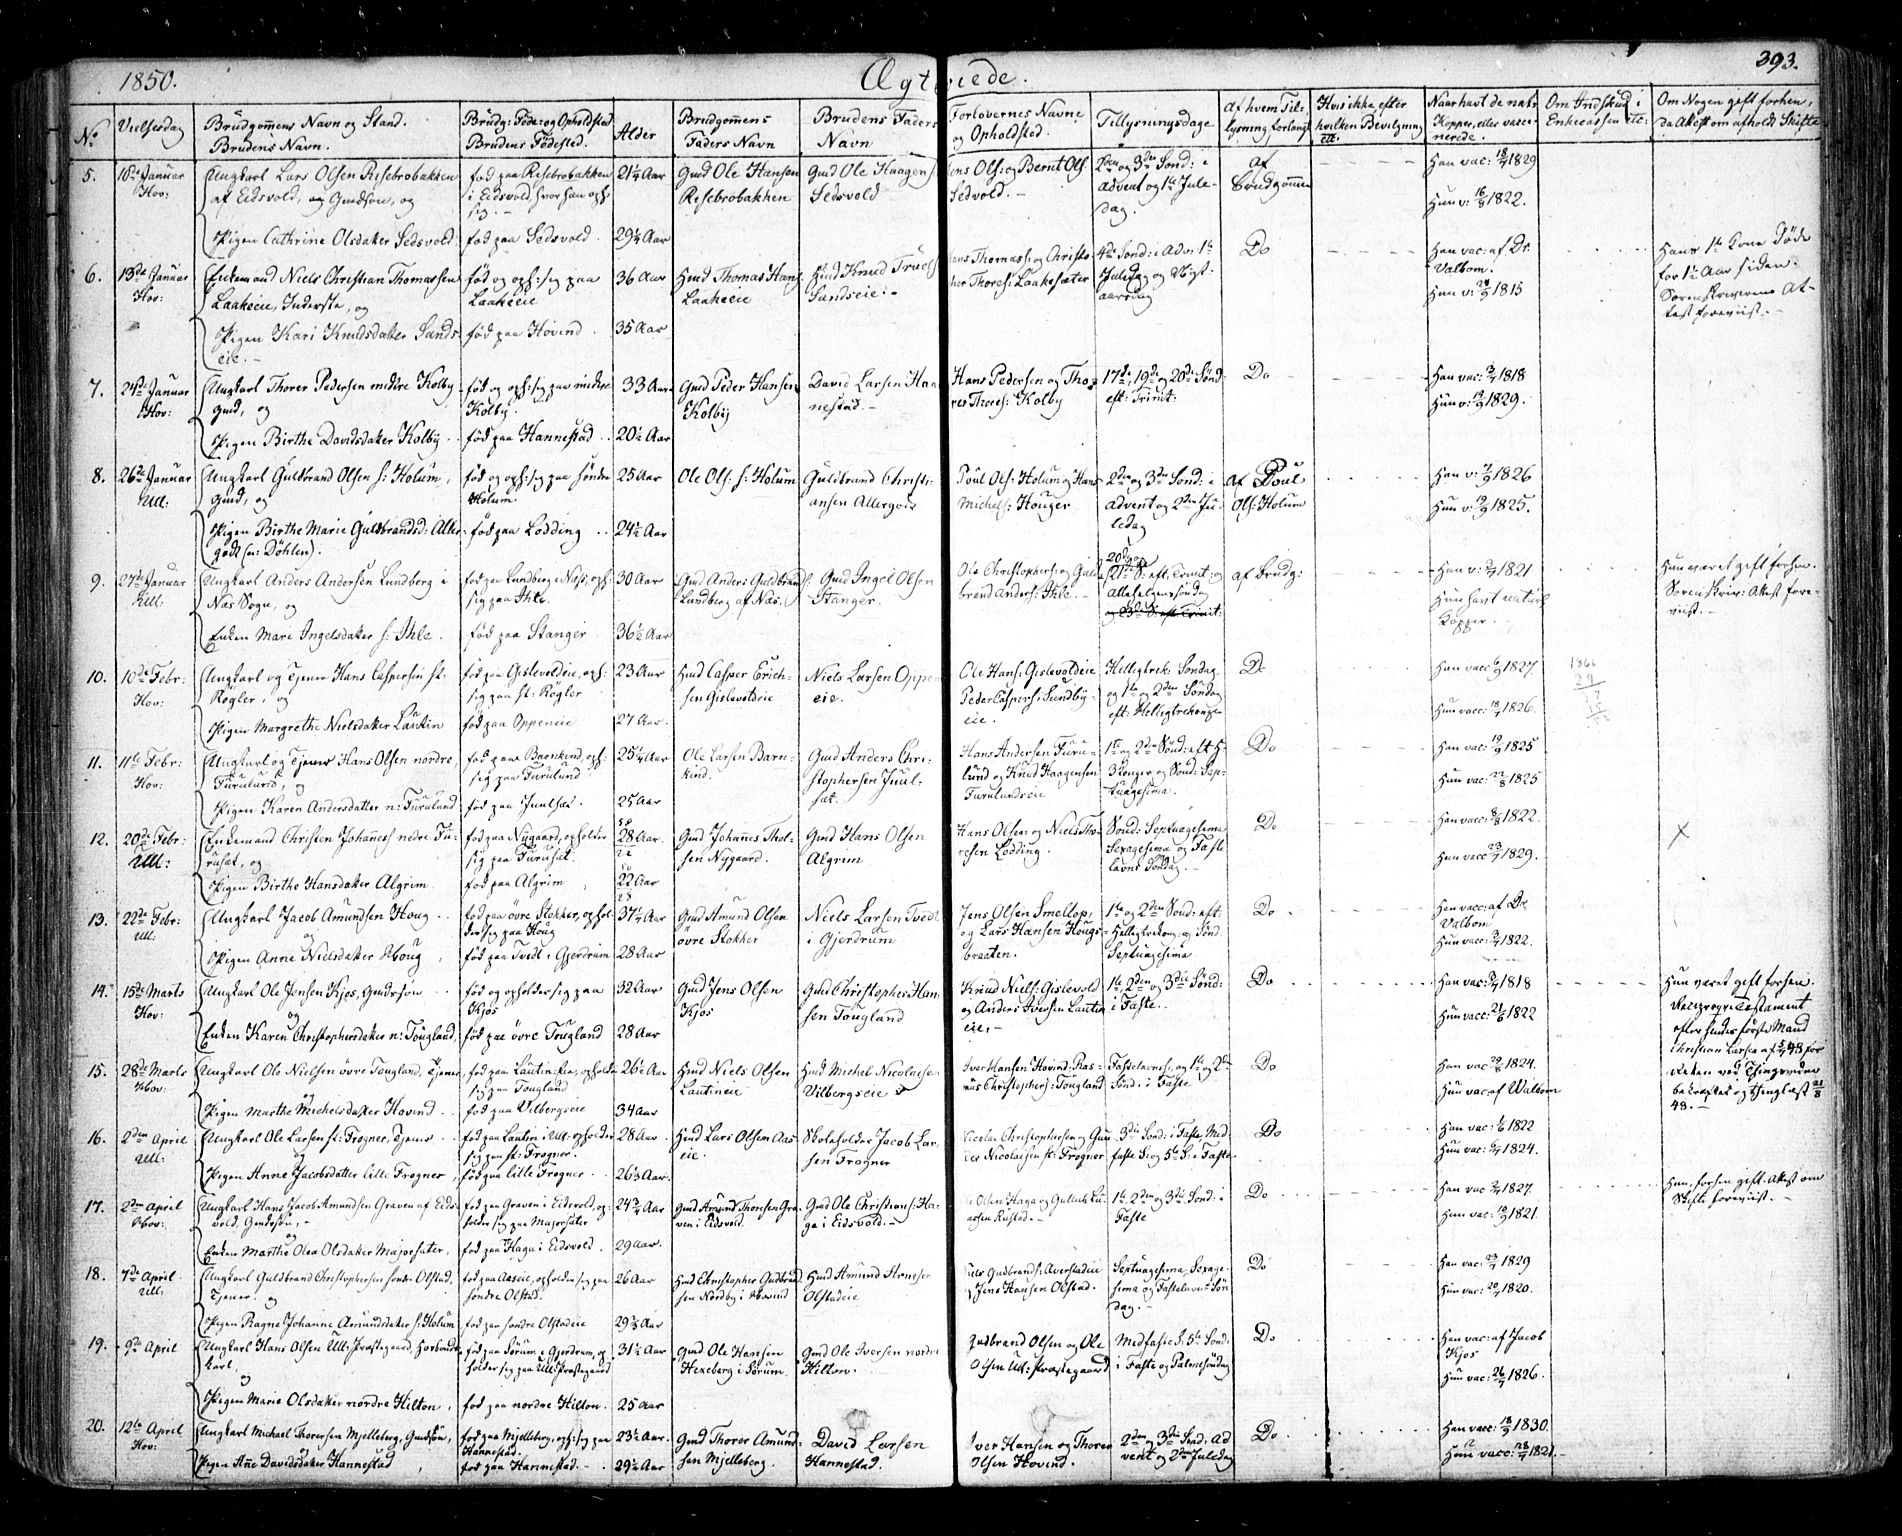 1850.
Ægteviede.
393.
No
Vielsesdag
Brudgommens Navn og Stand.
Brudens Navn.
Brudg: Føde- og Opholdsted
Brudens Fødested.
Alder
Brudgommens
Faders Navn
Brudens Faders
Navn
Forlovernes Navne
og Opholdsted.
Tillysningsdage
Af hvem Til-
lysning forlangt
Hvis ikke, efter
hvilken Bevilgning
etc.
Naar havt de nat:
Kopper, eller vacci-
nerede.
Om Indskud i
Enkecassen etc:
Om Nogen gift forhen,
da Attest om afholdt Skifte
5.
16de Januar
Hov:
Ungkarl Lars Olsen Risebrobakken
af Eidsvold, og Gmdsøn, og
Pigen Cathrine Olsdatter Sedsvold
fød paa Risebrobakken
i Eidsvold, hvor han oph:
sig. -
fød paa Sedsvold.
21¼ Aar
29¼ Aar
Gmd Ole Hansen
Risebrobakken
Gmd Ole Haagens:
Sedsvold
Jens Ols: og Bernt Ols:
Sedvold. -
2den og 3die Sønd: i
Advent og 1ste Jule-
dag.
af
Brudgommen
Han vac: 18/7 1829
Hun v: 16/8 1822.
6.
13de Januar
Hov:
Enkemand Niels Christian Thomassen
Laakeeie, Inderste, og
Pigen Kari Knudsdatter Sands-
eie. -
fød og oph: sig paa
Laakeeie
fød paa Hovind.
36 Aar
35 Aar
Hmd Thomas Hans:
Laakeeie
Hmd Knud Truels:
Sandseie. -
Hans Thomass: og Christo-
pher Thores: Laakesæter
4de Sønd: i Adv: 1ste
Juledag og Nyt-
aarsdag
Do
Han vac: af Dr.
Valbom.
Hun v: 1815
Hans 1ste Kone døde
for 1½ Aar siden.
Sorenskriverens At-
test foreviist. -
7.
24de Januar
Hov:
Ungkarl Thorer Pedersen midtre Kolby
gmd, og
Pigen Birthe Davidsdatter Kolby
fød og oph: sig paa midtre
Kolby.
fød paa Hannestad
33 Aar
20½ Aar
Gmd Peder Hansen
Kolby
David Larsen Han-
nestad. -
Hans Pedersen og Tho-
rer Thores: Kolby
17de, 19de og 20de Sønd:
eft: Trinit:
Do
Han vac: 1818
Hun v: 1829.
8.
26de Januar
Ull:
Ungkarl Guldbrand Olsen s: Holum,
gmd, og
Pigen Birthe Marie Guldbrandsd: Aller-
godt (n: Døhlen).
fød og oph: sig paa søndre
Holum.
fød paa Lødding
25 Aar
24½ Aar
Ole Ols: s: Holum
Guldbrand Christi-
ansen Allergodt
Poul Ols: Holum og Hans
Michels: Houger
2den og 3die Sønd: i
Advent og 2den Ju-
ledag
af Poul
Ols: Holum
Han v: 1826
Hun v: 1825.
9.
27de Januar
Ull:
Ungkarl Anders Andersen Lundberg i
Næs Sogn, og
Enken Mari Ingelsdatter s: Ihle.
fød paa Lundberg i Næs, oph:
sig paa Ihle.
fød paa Stanger
30 Aar
36½ Aar
Gmd Anders Guldbrands:
Lundberg af Næs.
Gmd Ingel Olsen
Stanger.
Ole Christophers: og Guld-
brand Anders: Ihle. -
20de og
21de S: eft: Trinit: og
Allehelgenssøndag
og 23de S: eft: Trinit:
af Brudg:
Han v: 1821
Hun havt naturl
Kopper.
Hun været gift forhen.
Sorenskriv: Attest fore-
viist. -
10.
10de Febr:
Hov:
Ungkarl og Tjener Hans Caspersen st:
Røgler, og
Pigen Margrethe Nielsdatter Lautin
fød paa Gislevoldeie, oph:
sig paa st: Røgler
fød paa Oppeneie
23 Aar
27 Aar.
Hmd Casper Erich-
sen Gislevoldeie
Niels Larsen Oppen-
eie.
Ole Hans: Gislevoldeie
Peder Caspers: Sundby-
eie.
Helligtrek: Søndag,
og 1ste og 2den Søndag
eft: Helligtrekonger
Do
Han vacc: 1827.
Hun vacc: 1826.
1866
29
11.
11te Febr:
Hov:
Ungkarl og Tjener Hans Olsen nordre
Furulund, og
Pigen Karen Andersdatter n: Furulund
fød paa Barnkind, oph:
sig paa Furulund
fød paa Juulsæt.
25¼ Aar
25 Aar
Ole Larsen Barn-
kind.
Gmd Anders Chri-
stophersen Juul-
sæt.
Hans Andersen Furu-
lund og Knud Haagensen
Furulundseie
1ste og 2den Sønd: eft H:
3 Konger og Sønd: Sep-
tuagesima.
Do
Han vac: 1825
Hun vac: 1825
12.
20de Febr:
Ull:
Enkemand Christen Johaness nedre Fu-
ruset, og
Pigen Birthe Hansdatter Algrim.
fød paa Nygaard, opholder
sig paa Furuset.
fød paa Algrim
28 Aar.
22 Aar
Gmd Johanes Thol-
sen Nygaard.
Gmd Hans Olsen
Algrim
Hans Olsen og Niels Tho-
resen Lødding.
Sønd: Septuagesima
Sexagesima og Faste-
lavns Søndag. -
Do
Han vacc: 1822.
Hun vacc 1829.
X
13.
22de Febr:
Ull:
Ungkarl Jacob Amundsen Houg
og
Pigen Anne Nielsdatter Houg
fød paa øvre Stokker, ophol-
der sig paa Houg
fød paa Tvedt i Gjerdrum
37¼ Aar
28 Aar
Gmd Amund Olsen
øvre Stokker
Niels Larsen Tvedt
i Gjerdrum
Jens Olsen Smellop,
og Lars Hansen Hougs-
braaten.
1ste og 2den Sønd: eft:
Helligtrekong: og Sønd:
Septuagesima
Do
Han vacc: af Dr.
Valbom
Hun vacc: 1822.
14.
15de Marts
Hov:
Ungkarl Ole Jensen Kjos, Gmdssøn
og
Enken Karen Christophersdatter n: Tougland,
fød og opholder sig paa
Kjos
fød paa øvre Tougland
32 Aar
28 Aar
Gmd Jens Olsen
Kjos
Gmd Christopher Han-
sen Tougland
Knud Niels: Gislevold
og Anders Iversen Lautin-
eie. -
1ste, 2den og 3die Sønd:
i Faste.
Do
Han vac: 1818
Hun vacc: 21/6 1822
Hun været gift forhen.
Reciproqve Testament
efter hendes første Mand
Christian Larsen af 48 for
Retten ved Thingvidner
bekræftet og thinglæst
48. -
15.
28de Marts
Hov:
Ungkarl Ole Nielsen øvre Tougland, Tjener,
og
Pigen Marthe Michelsdatter Hovind
fød paa Lautineie, opholder
sig paa Tougland
fød paa Vilbergseie
26½ Aar
34 Aar
Hmd Niels Olsen
Lautineie
Hmd Michel Nicolaisen
Vilbergseie
Iver Hansen Hovind, Ras-
mus Christophers: Tougland
Fastelavns:, og 1ste og 2de
Sønd: i Faste
Do
Han vac 1824.
Hun vac af Walbom
16.
2den April
Ull:
Ungkarl Ole Larsen st: Frogner, Tjener
og
Pigen Anne Jacobsdatter lille Frogner,
fød paa Lautin i Ull: opholder
sig paa st: Frogner.
fød paa lille Frogner
28 Aar
26½ Aar.
Hmd Lars Olsen Aas-
eie.
Skoleholder Jacob Lar-
sen Frogner
Nicolai Christophersen og Gun-
der Nicolaisen st: Frogner
3die Sønd: i Faste, Mid-
faste S: og 5te S: i Faste
Do
Han vac: 1822
Hun vac: 1824.
17.
2den April
Hov:
Ungkarl Hans Jacob Amundsen Graven af Eids-
vold, Gmdssøn, -
og
Enken Marthe Olea Olsdatter Majorsæter,
fød paa Graven i Eidsvold, op-
holder sig paa Majorsæter
fød paa Haga i Eidsvold.
24¾ Aar
29 Aar.
Gmd Amund Thoresen Gra-
ven i Eidsvold
Gmd Ole Christians: Ha-
ga i Eidsvold. -
Ole Olsen Haga og Gulbr: La-
arsen Rustad. -
1ste, 2den og 3die Sønd: i
Faste
Do
Han vac 1827.
Hun vac: 1821.
Hun, forhen gift. Attest om
Skifte foreviist. -
18.
7de April
Ull:
Ungkarl Guldbrand Christophersen søndre Olstad,
Tjener, og
Pigen Ragne Johanne Amundsdatter s: Holum
fød paa Aaseie, opholder sig paa
søndre Olstad.
fød paa søndre Olstadeie
26 Aar
29½ Aar
Hmd Christopher Gudbrand-
sen Nordby i Hovind
Hmd Amund Arnesen
Olstadeie
Gudbrands: Averstadeie
Jens Hansen Olstad.
Septuagesima, Sexage-
sima og Fastelavns Søn-
dag. -
Do
Han vac: 1829
Hun vac: 1820.
19.
9de April
Ungkarl Hans Olsen Ull: Præstegaard, Forvalter-
karl,
og
Pigen Marie Olsdatter nordre Hilton,
fød paa Sørum i Gjerdrum, op-
holder sig paa Ull: Præstegaard
fød paa nordre Hilton.
31½ Aar
25 Aar
Gmd Ole Hansen
Hexeberg i Sørum
Gmd Ole Iversen nordre
Hilton.
Gudbrand Olsen og Ole
Olsen Ull: Præstegaard
Midfaste S: 5te Sønd:
i Faste og Palmesøndag
Do
Han vac: af Jacob
Kjos
Hun vac: 26/7 1826.
20.
12te April
Hov:
Ungkarl Michael Thorersen Mjelleberg, Gmdssøn,
og
Pigen Ane Davidsdatter Hannestad
fød paa Mjelleberg, oph: sig paa
Hannestad.
fød paa Hannestad. -
23½ Aar.
29½ Aar
Gmd Thorer Amund-
sen Mjelleberg.
David Larsen
Hannestad.
Iver Hansen og Thorer
Olsen Hovind.
2den og 3die Sønd: i Ad-
vent og 2den Juledag
Do
Han vacc: 1830.
Hun vacc: 1821.